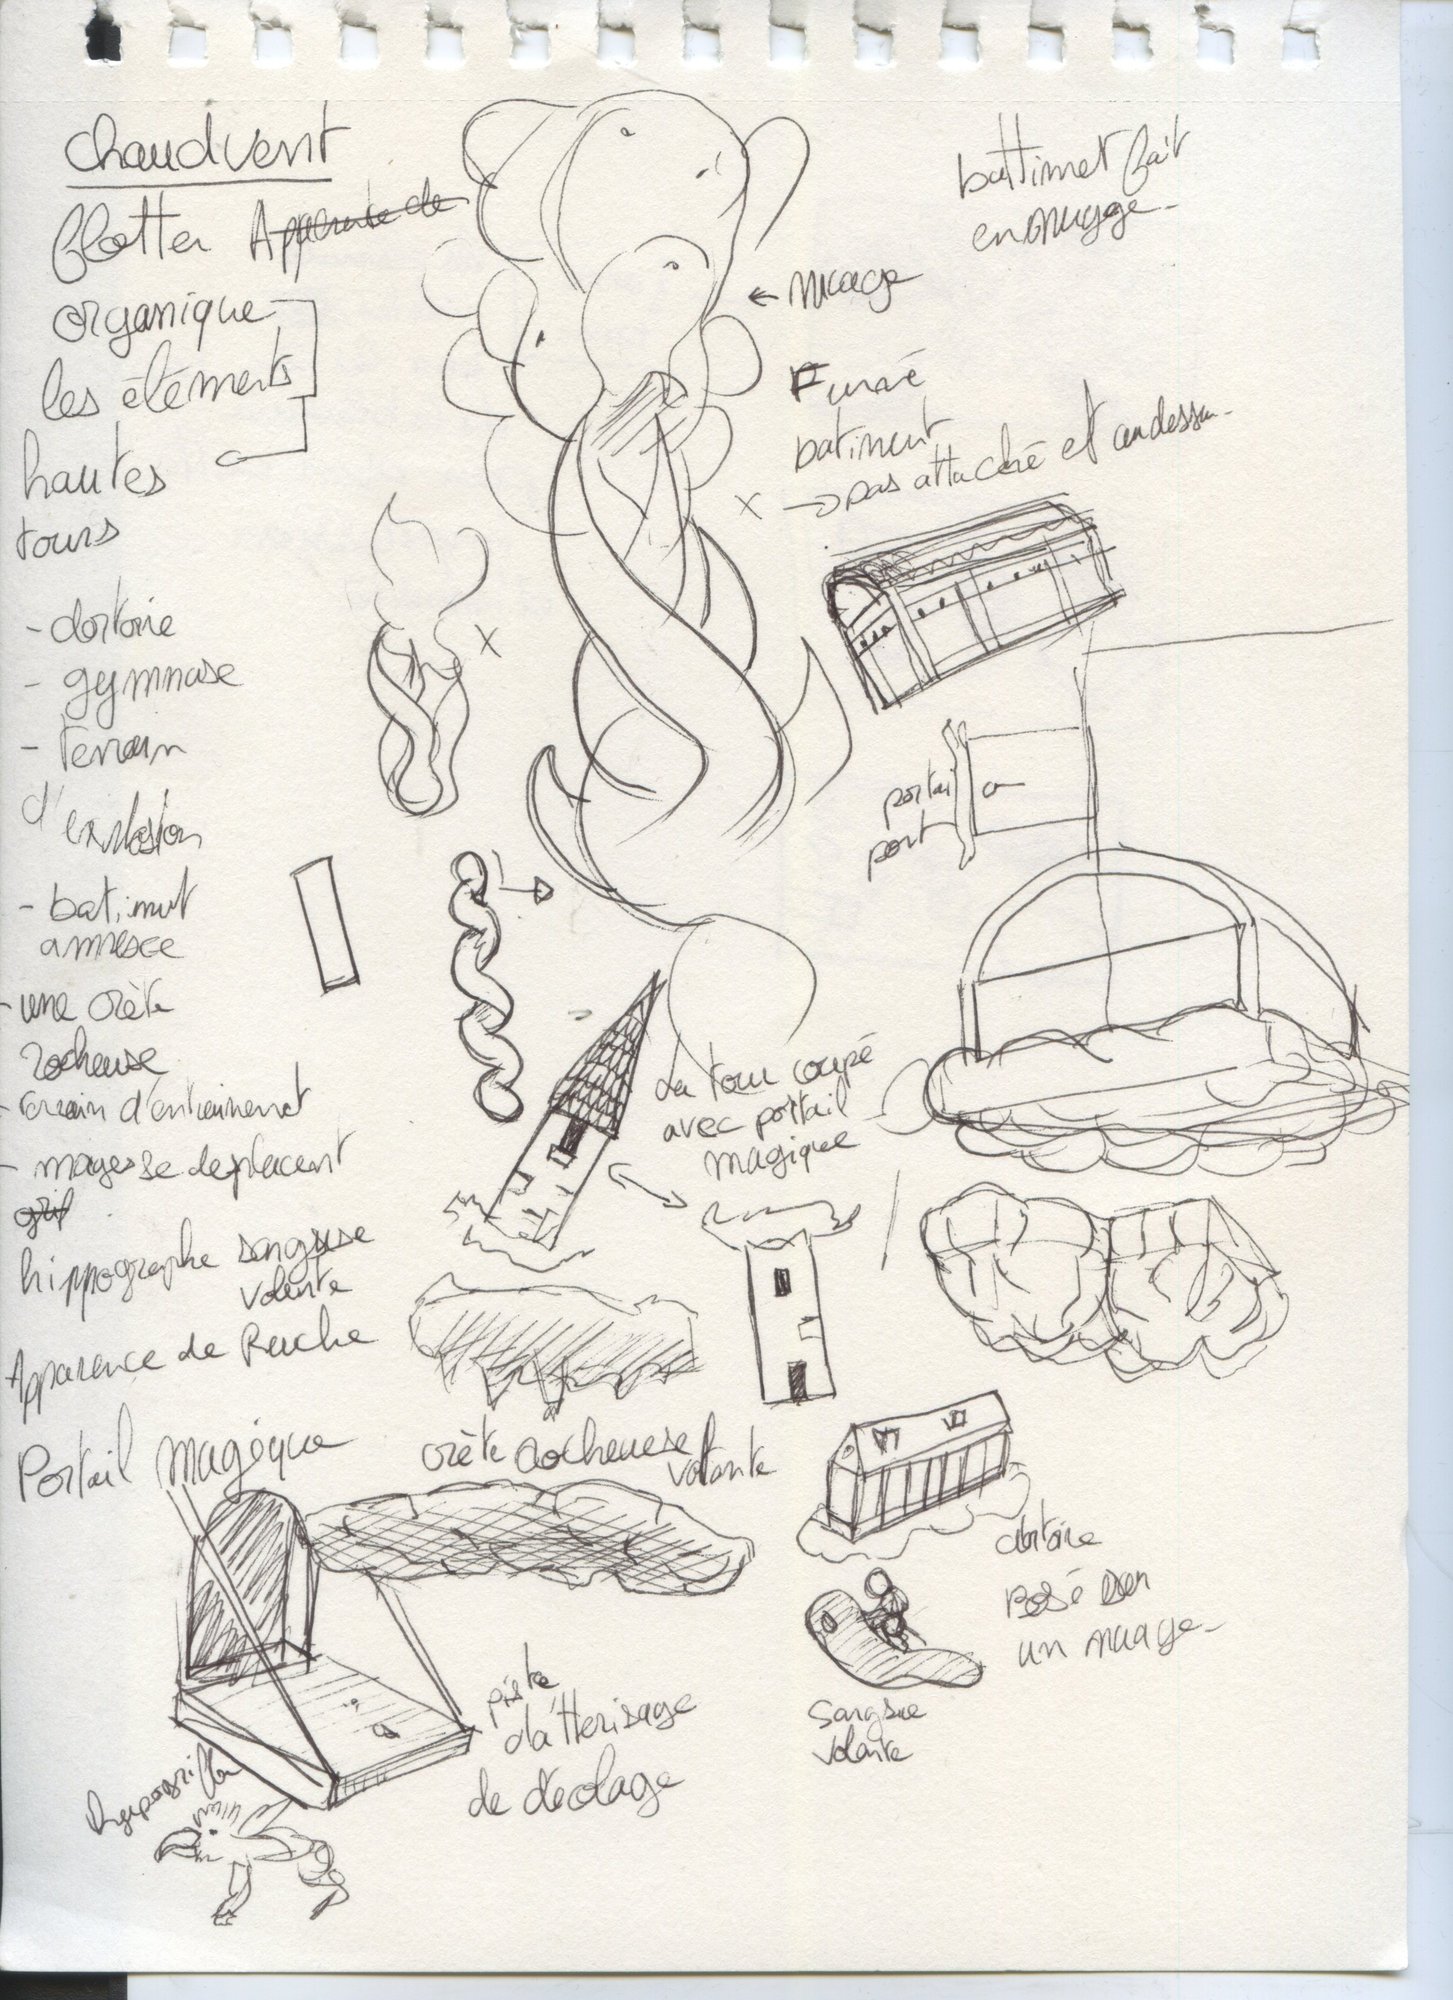 chaudvent
flotter
organique
les éléments
hautes
tours
- dortoire
- gymnase
- terrain
d'explosion
- batiment
annexe
- une crète
rocheuse
- terrain d'entrainement
- mages se deplacent
hippographe sangsue
volante
Apparence de Ruche
Portail magique
battimet fait
en nuage
← nuage
batiment
x → pas attaché et au dessu
x
portai
port
La tour coupé
avec portail
magique
crète rocheuse
volante
dortoire
Posé sur
un nuage
sangsue
volante
piste
d'atterisage
de décolage